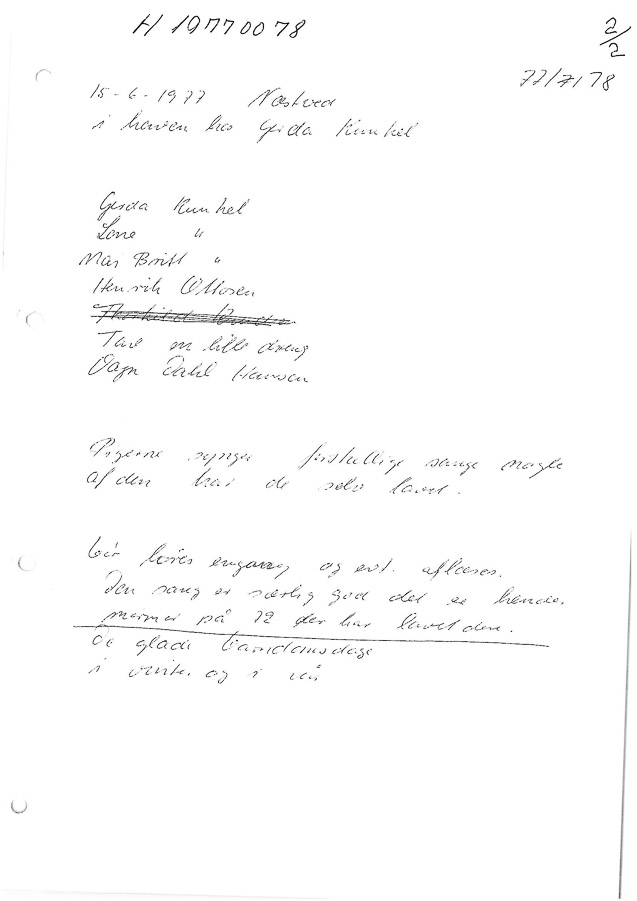 H 19770078
2/2
77/7/78
15-6-1977 Næstved
i haven hos Gerda Kunkel
Gerda Kunkel
Lone "
Maj Britt "
Henrik Ottosen
Tave en lille dreng
Vagn Dahl Hansen
Pigerne synger forskellige sange nogle
af den har de selv lavet.
bør høres engang og evt. aflæses.
Den sang er særlig god det er hendes
mormor på 72 der har lavet den.
De glade barndomsdage
i vinter og i vår